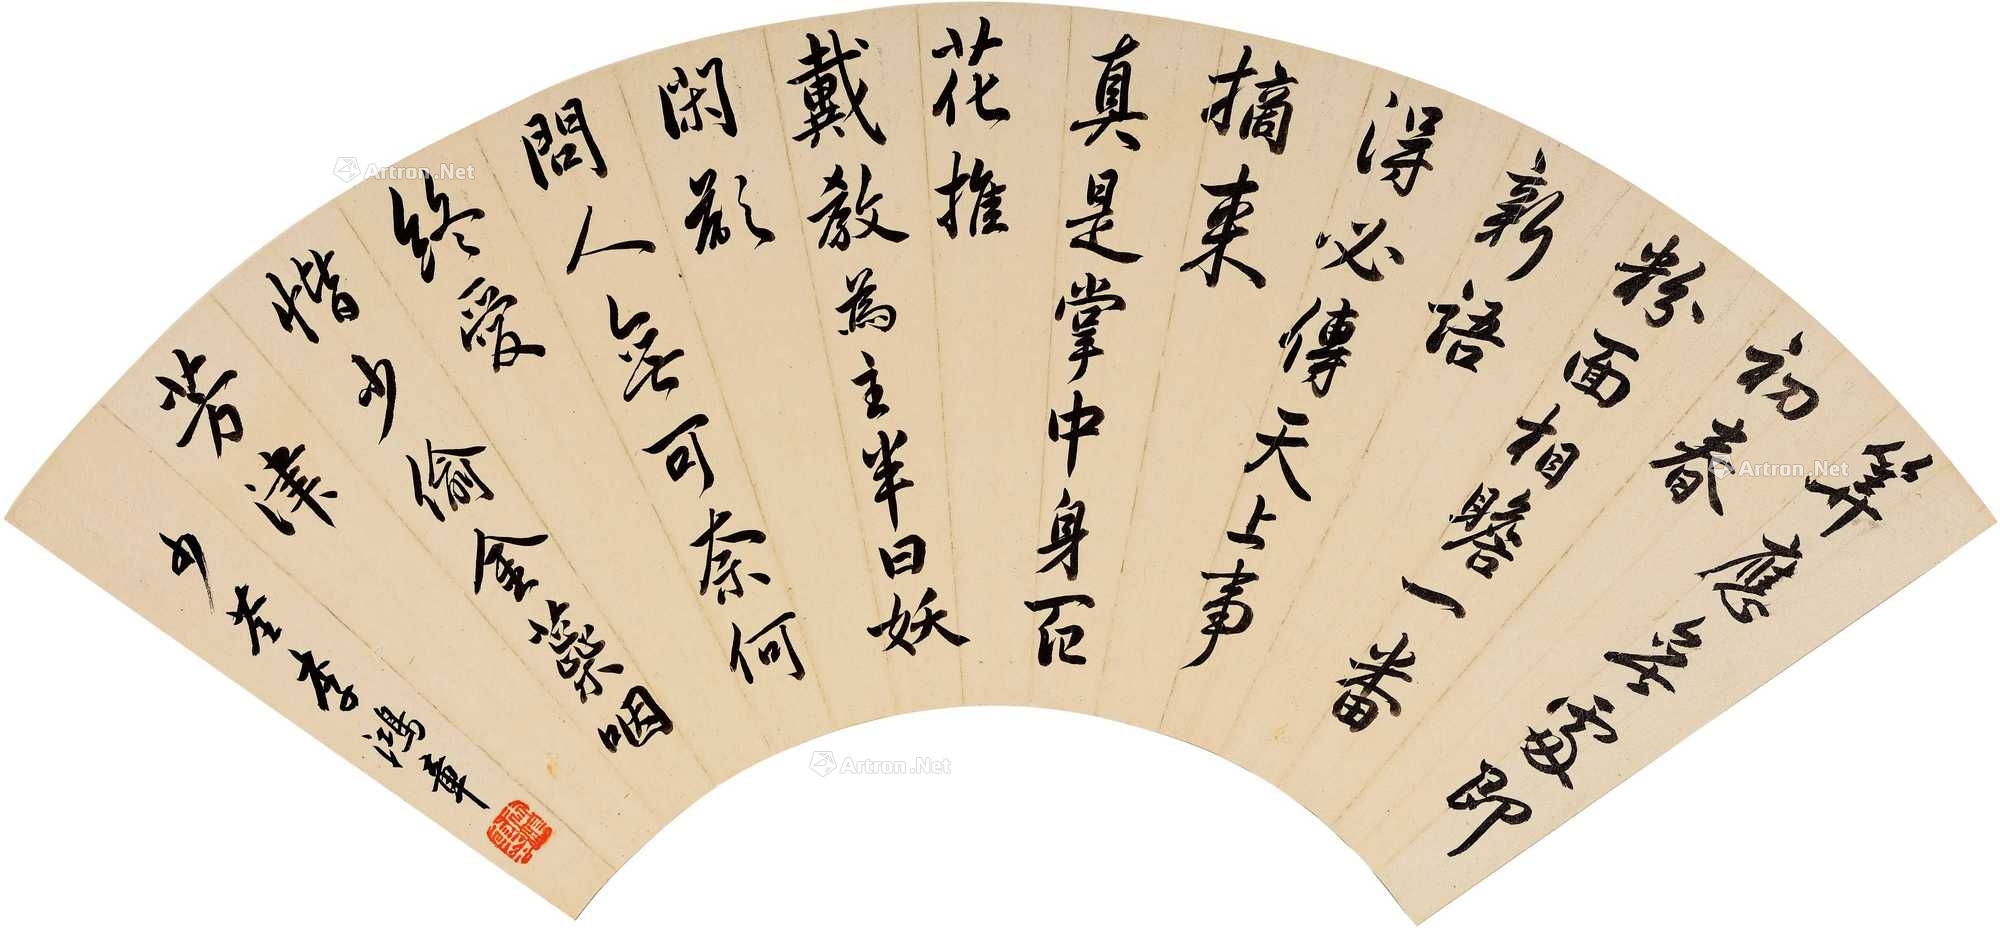 算應無處即
初春
粉面相瞻一番
新語
得必傳天上事
摘来
真是掌中身百
花推
戴教為主半日妖
閑歡
問人無可奈何
終愛
惜少偷金蕊咽
芳津
少荃李鴻章
Artron.Net
Artron.Net
Artron.Net